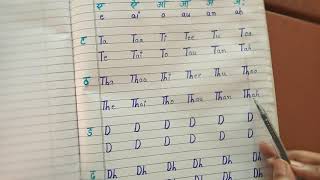 ए ऐ ओ औ अं अः
e ai o au an ah
ट Ta Taa Ti Tee Tu Too
Te Tai To Tau Tan Tah
ठ Tha Thaa Thi Thee Thu Thoo
The Thai Tho Thau Than Thah
ड D D D D D D
D D D D D D
ढ Dh Dh Dh Dh Dh Dh